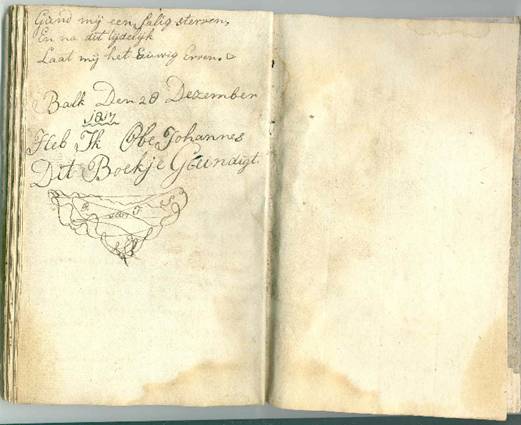 Gund mij een salig sterven,
En na dit tijdelijk
Laat mij het Euwig Erven.
Balk Den 28 Dezember
1817
Heb Ik Obe Johannes
Dit Boekje Geindigt